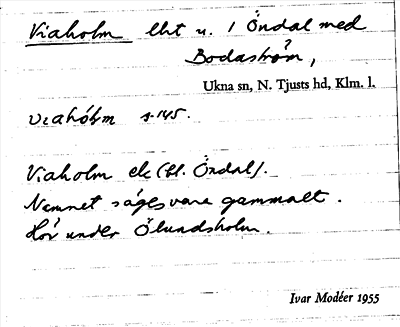 Viaholm lht u. 1 Öndal med
Bodaström,
Ukna sn, N. Tjusts hd, Klm. l.
viahólm s. 145.
Viaholm ek (bl. Öndal).
Namnet säges vara gammalt.
Hör under Ölundsholm.
Ivar Modéer 1955